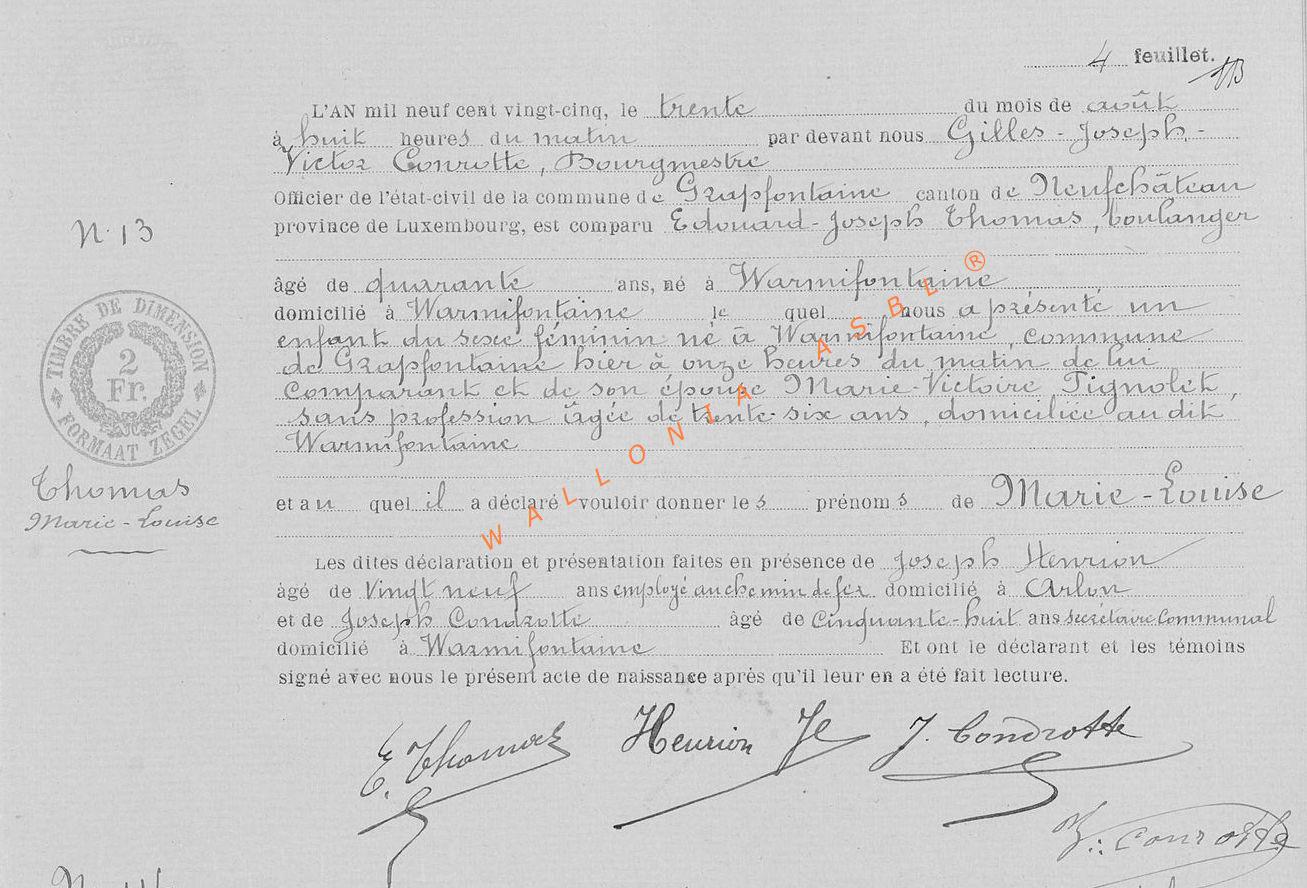 4 feuillet.
L'AN mil neuf cent vingt-cinq, le trente du mois de août
à huit heures du matin par devant nous Gilles-Joseph-
Victor Conrotte, Bourgmestre
Officier de l'état-civil de la commune de Grapfontaine canton de Neufchâteau
province de Luxembourg, est comparu Edouard-Joseph Thomas, boulanger
N. 13
âgé de quarante ans, né à Warmifontaine
domicilié à Warmifontaine le quel nous a présenté un
enfant du sexe féminin né à Warmifontaine, commune
de Grapfontaine hier à onze heures du matin de lui
comparant et de son épouse Marie-Victoire Pignolet,
sans profession âgée de trente-six ans, domiciliée au dit
Warmifontaine
TIMBRE DE DIMENSION
2
Fr.
FORMAAT ZEGEL
Thomas
Marie-Louise
et au quel il a déclaré vouloir donner les prénoms de Marie-Louise
Les dites déclaration et présentation faites en présence de Joseph Henrion
âgé de vingt neuf ans employé au chemin de fer domicilié à Arlon
et de Joseph Condrotte âgé de cinquante-huit ans secrétaire communal
domicilié à Warmifontaine Et ont le déclarant et les témoins
signé avec nous le présent acte de naissance après qu'il leur en a été fait lecture.
E. Thomas Henrion J. Condrotte
Conrotte
WALLONIA ASBL ®